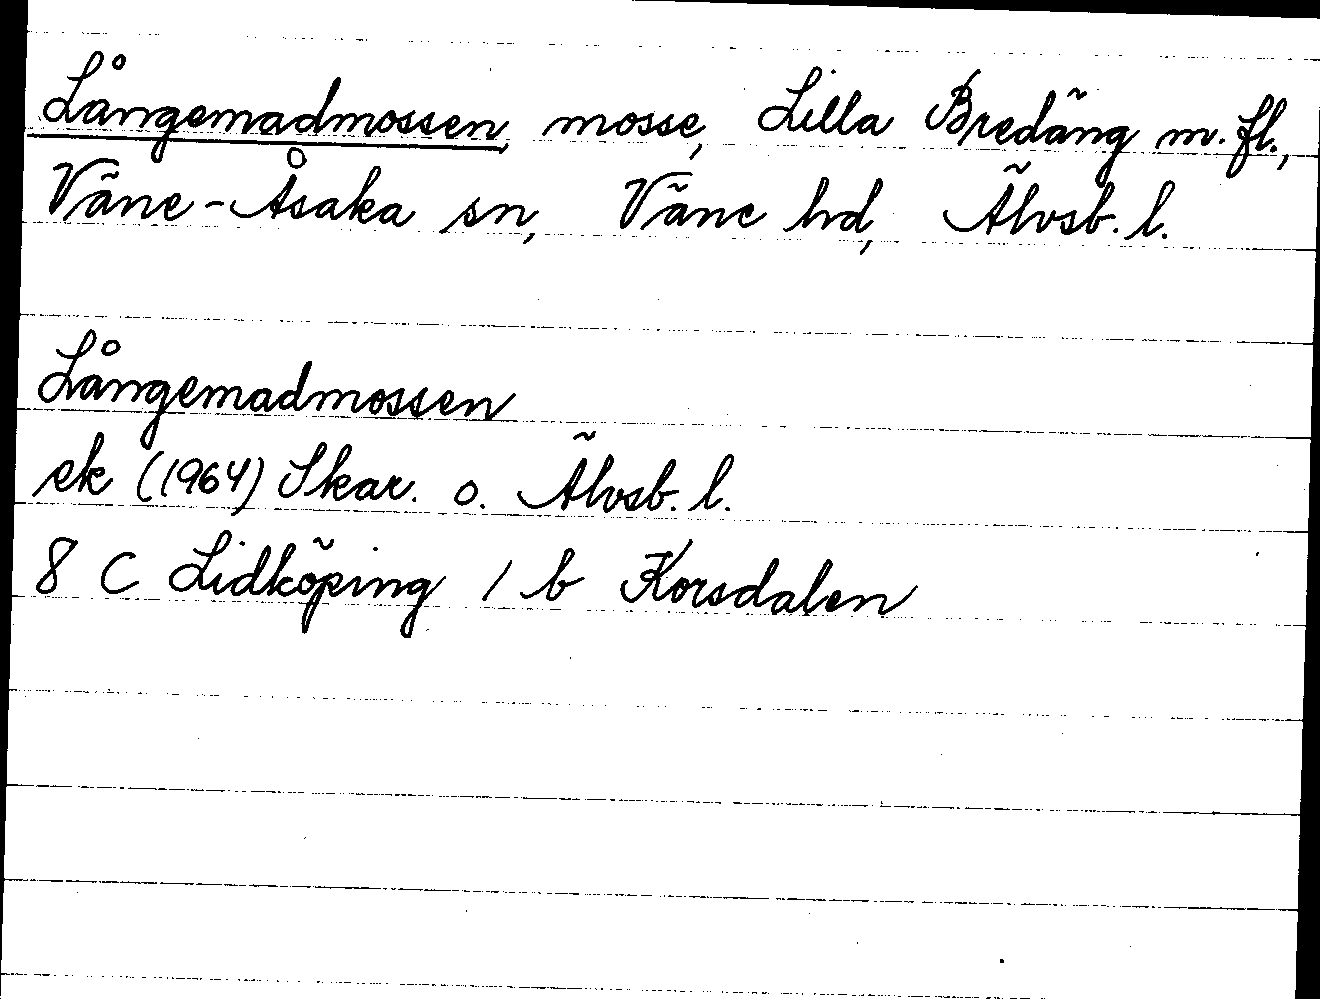 Långemadmossen, mosse, Lilla Bredäng m. fl.,
Väne-Åsaka sn, Väne hd, Älvsb. l.
Långemadmossen
ek (1964) Skar. o. Älvsb. l.
8 C Lidköping 1 b Korsdalen